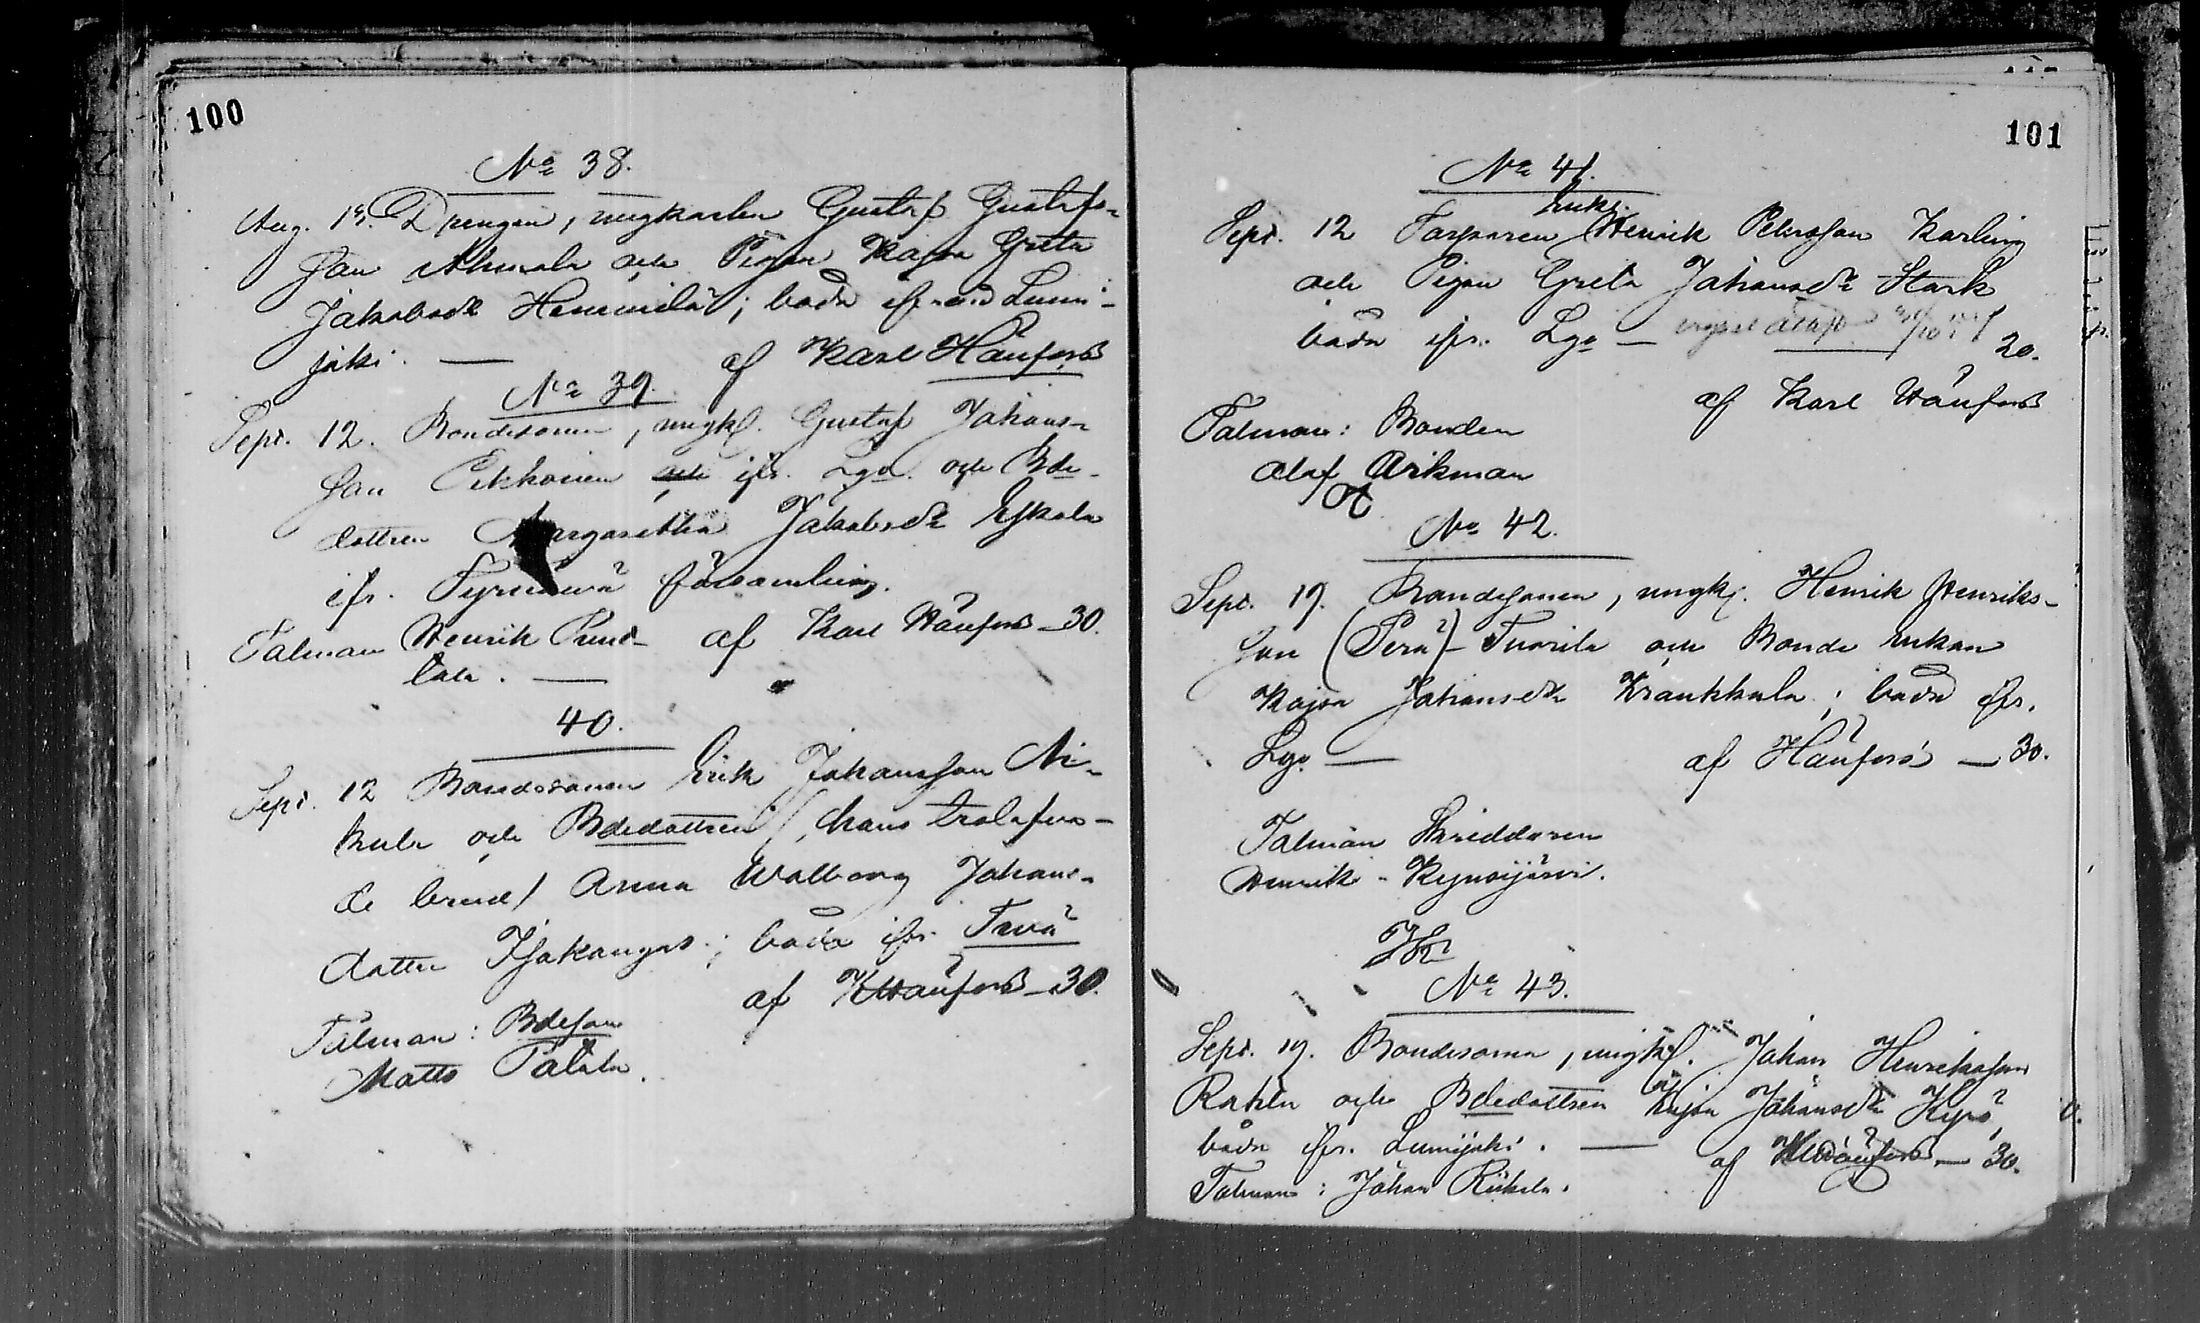 100
No 38.
Aug. 19. Drengen, ungkarlen Gustaf Gustafs-
son Ahmala och Pigan Kajsa Greta
Jakobsdr Hemmilä; båda ifrån Lumi-
joki. — af Karl Hånfors
No 39.
Sept. 12. Bondesonen, ungk. Gustaf Johans-
son Pekkonen och ifr. Lgo. och Bde-
dottren Margaretha Jakobsdr Eskola
ifr. Tyrnäwä församling.
Talman Henrik af Karl Hånfors — 30.
tala. —
40.
Sept. 12 Bondesonen Erik Johansson Ni-
kula och Bdedottren /, hans trolofva-
de brud / Anna Walborg Johans-
dotter Isokangas; båda ifr. Frvå
af K Hånfors — 30.
Talman: Bdeson
Matts Palala.
101
No 41.
Enkl.
Sept. 12 Farfaren Henrik Petersson Karling
och Pigan Greta Johansdr Stark
båda ifr. Lgo — 20.
af Karl Hånfors
Talman: Bonden
Olof Arkman
No 42.
Sept. 19. Bondesonen, ungk. Henrik Henriks-
son (Perä)-Tuorila och Bonde enkan
Kajsa Johansdr Krankkala; båda ifr.
Lgo. — af Hånfors — 30.
Talman Skräddaren
Henrik Kynsijärvi.
No 43.
Sept. 19. Bondesonen, ungk. Johan Henriksson
och Bdedottren Kajsa Johansdr
båda ifr. Lumijoki. — af K Hånfors — 30.
Talman: Johan